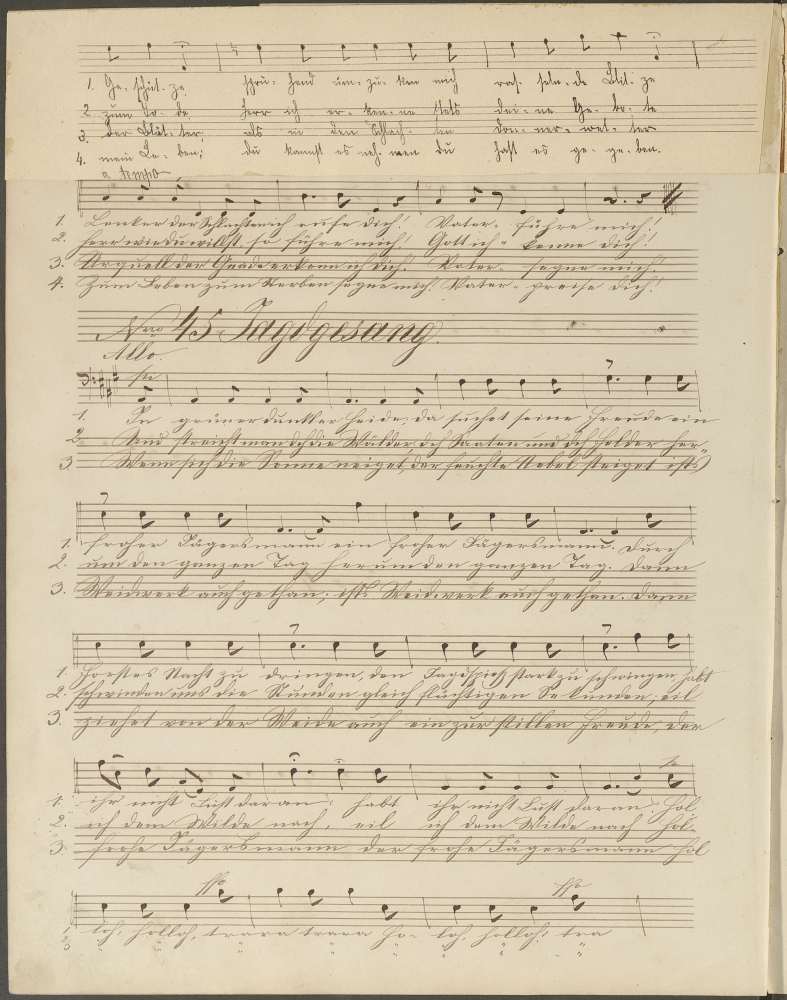 1. Ge- schüt- ze sprü- hend um- zu- ken mich ras- seln- de Blit- ze
2. zum To- de, Herr ich er- ken- ne stets dei- ne Ge- bo- te
3. der Blät- ter, als in den Schlach- ten don- ner- wet- ter
4. mein Le- ben; du kannst es neh- men du hast es ge- ge- ben.
a tempo
1. Lenker der Schlachten ich rufe dich! Vater- führe mich!
2. Herr wie du willst, so führe mich! Gott ich- kenne dich!
3. Urquell der Gnade erkenn ich dich. Vater- segne mich.
4. Zum Leben zum Sterben segne mich! Vater- preise dich!
Nro 45 Jagdgesang.
Allo.
1. In grüner dunkler Heide, da suchet seine Freude ein
2. Und streicht man dch die Wälder dch Saaten und dch Felder her-
3 Wenn sich die Sonne neiget, der feuchte Nebel steiget ists
1. froher Jägersmann ein froher Jägersmann. Durch
2. um den ganzen Tag herum den ganzen Tag. Dann
3. Weidwerk auch gethan; ists Weidwerk auch gethan. Dann
1. Forstes Nacht zu dringen, den Jagdspieß stark zu schwingen, habt
2. schwinden uns die Stunden gleich flüchtigen Sekunden; eil
3. ziehet von der Weide auch ein zur stillen Freude, der
1. ihr nicht Lust daran; habt ihr nicht Lust daran; Hol
2. ich dem Wilde nach, eil ich dem Wilde nach Hol-
3. frohe Jägersmann der frohe Jägersmann Hol
1. loh, holloh, trara trara Ho- loh, holloh! tra